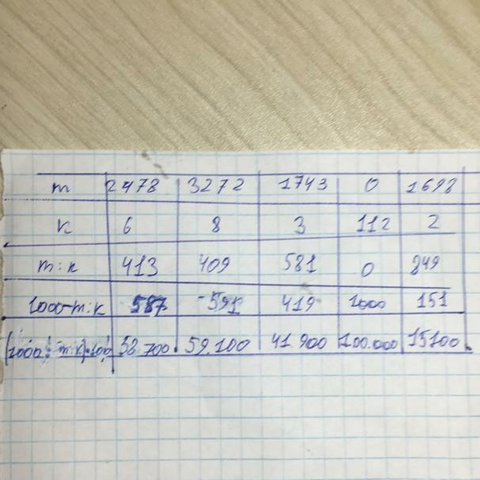 m 2478 3272 1743 0 1698
k 6 8 3 112 2
m:k 413 409 581 0 849
1000-m:k 587 591 419 1000 151
(1000-m:k)·100 58 700 59.100 41 900 100.000 15100